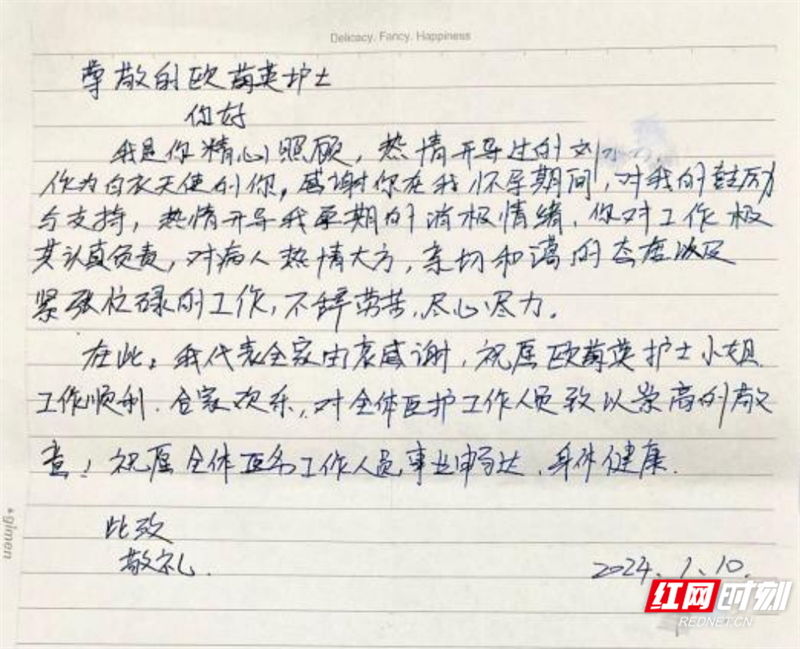 Delicacy. Fancy. Happiness
尊敬的欧菊英护士
你好
我是你精心照顾，热情开导过的刘
作为白衣天使的你，感谢你在我怀孕期间，对我的鼓励
与支持，热情开导我孕期的消极情绪，你对工作极
其认真负责，对病人热情大方，亲切和蔼的态度以及
紧张忙碌的工作，不辞劳苦，尽心尽力。
在此，我代表全家由衷感谢，祝愿欧菊英护士小姐
工作顺利．合家欢乐，对全体医护工作人员致以崇高的敬
意！祝愿全体医务工作人员，事业畅达、身体健康．
此致
敬礼．
2024、1、10．
gimen
红网时刻
REDNET.CN